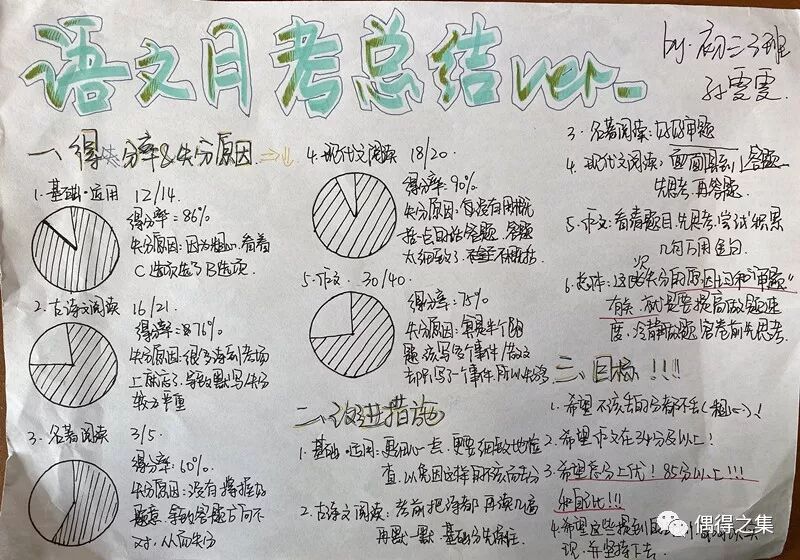 语文月考总结ver.
by.初二3班
孙雯雯
一、得分率&失分原因
1.基础·运用 12/14
得分率=86%
失分原因:因为粗心.看着
C选项选了B选项.
2.古诗文阅读 16/21
得分率=76%
失分原因:很多诗到考场
上就忘了.导致默写失分
较为严重
3.名著阅读 3/5
得分率:60%
失分原因:没有掌握好
题意.导致答题方向不
对,从而失分
4.现代文阅读 18/20
得分率:90%
失分原因:没有用概
括一点的话答题.答题
太细致了.
5.作文. 30/40
得分率:75%
失分原因:
题该写多个事件/作文
却只写了一个事件.所以失分
二、改进措施
1.基础·运用:更细心一点.更要细致地检
查.以免因这样的不该而失分
2.古诗文阅读:考前把诗都再读几遍
再默一默.基础分先保住.
3.名著阅读:好好审题
4.现代文阅读:面面周到答题
先思考.再答题.
5.作文:看清题目.先思考.尝试积累
几句万用金句.
6.总体:这次失分的原因均和“审题”
有关.就是要提高做题速
度,冷静做题.答卷前先思考.
三、目标!!!
1.希望不该丢的分都不丢(粗心)!
2.希望作文在34分以上!
3.希望总分上优!85分以上!!!
4.希望这些提到的
现.并坚持下去.
偶得之集